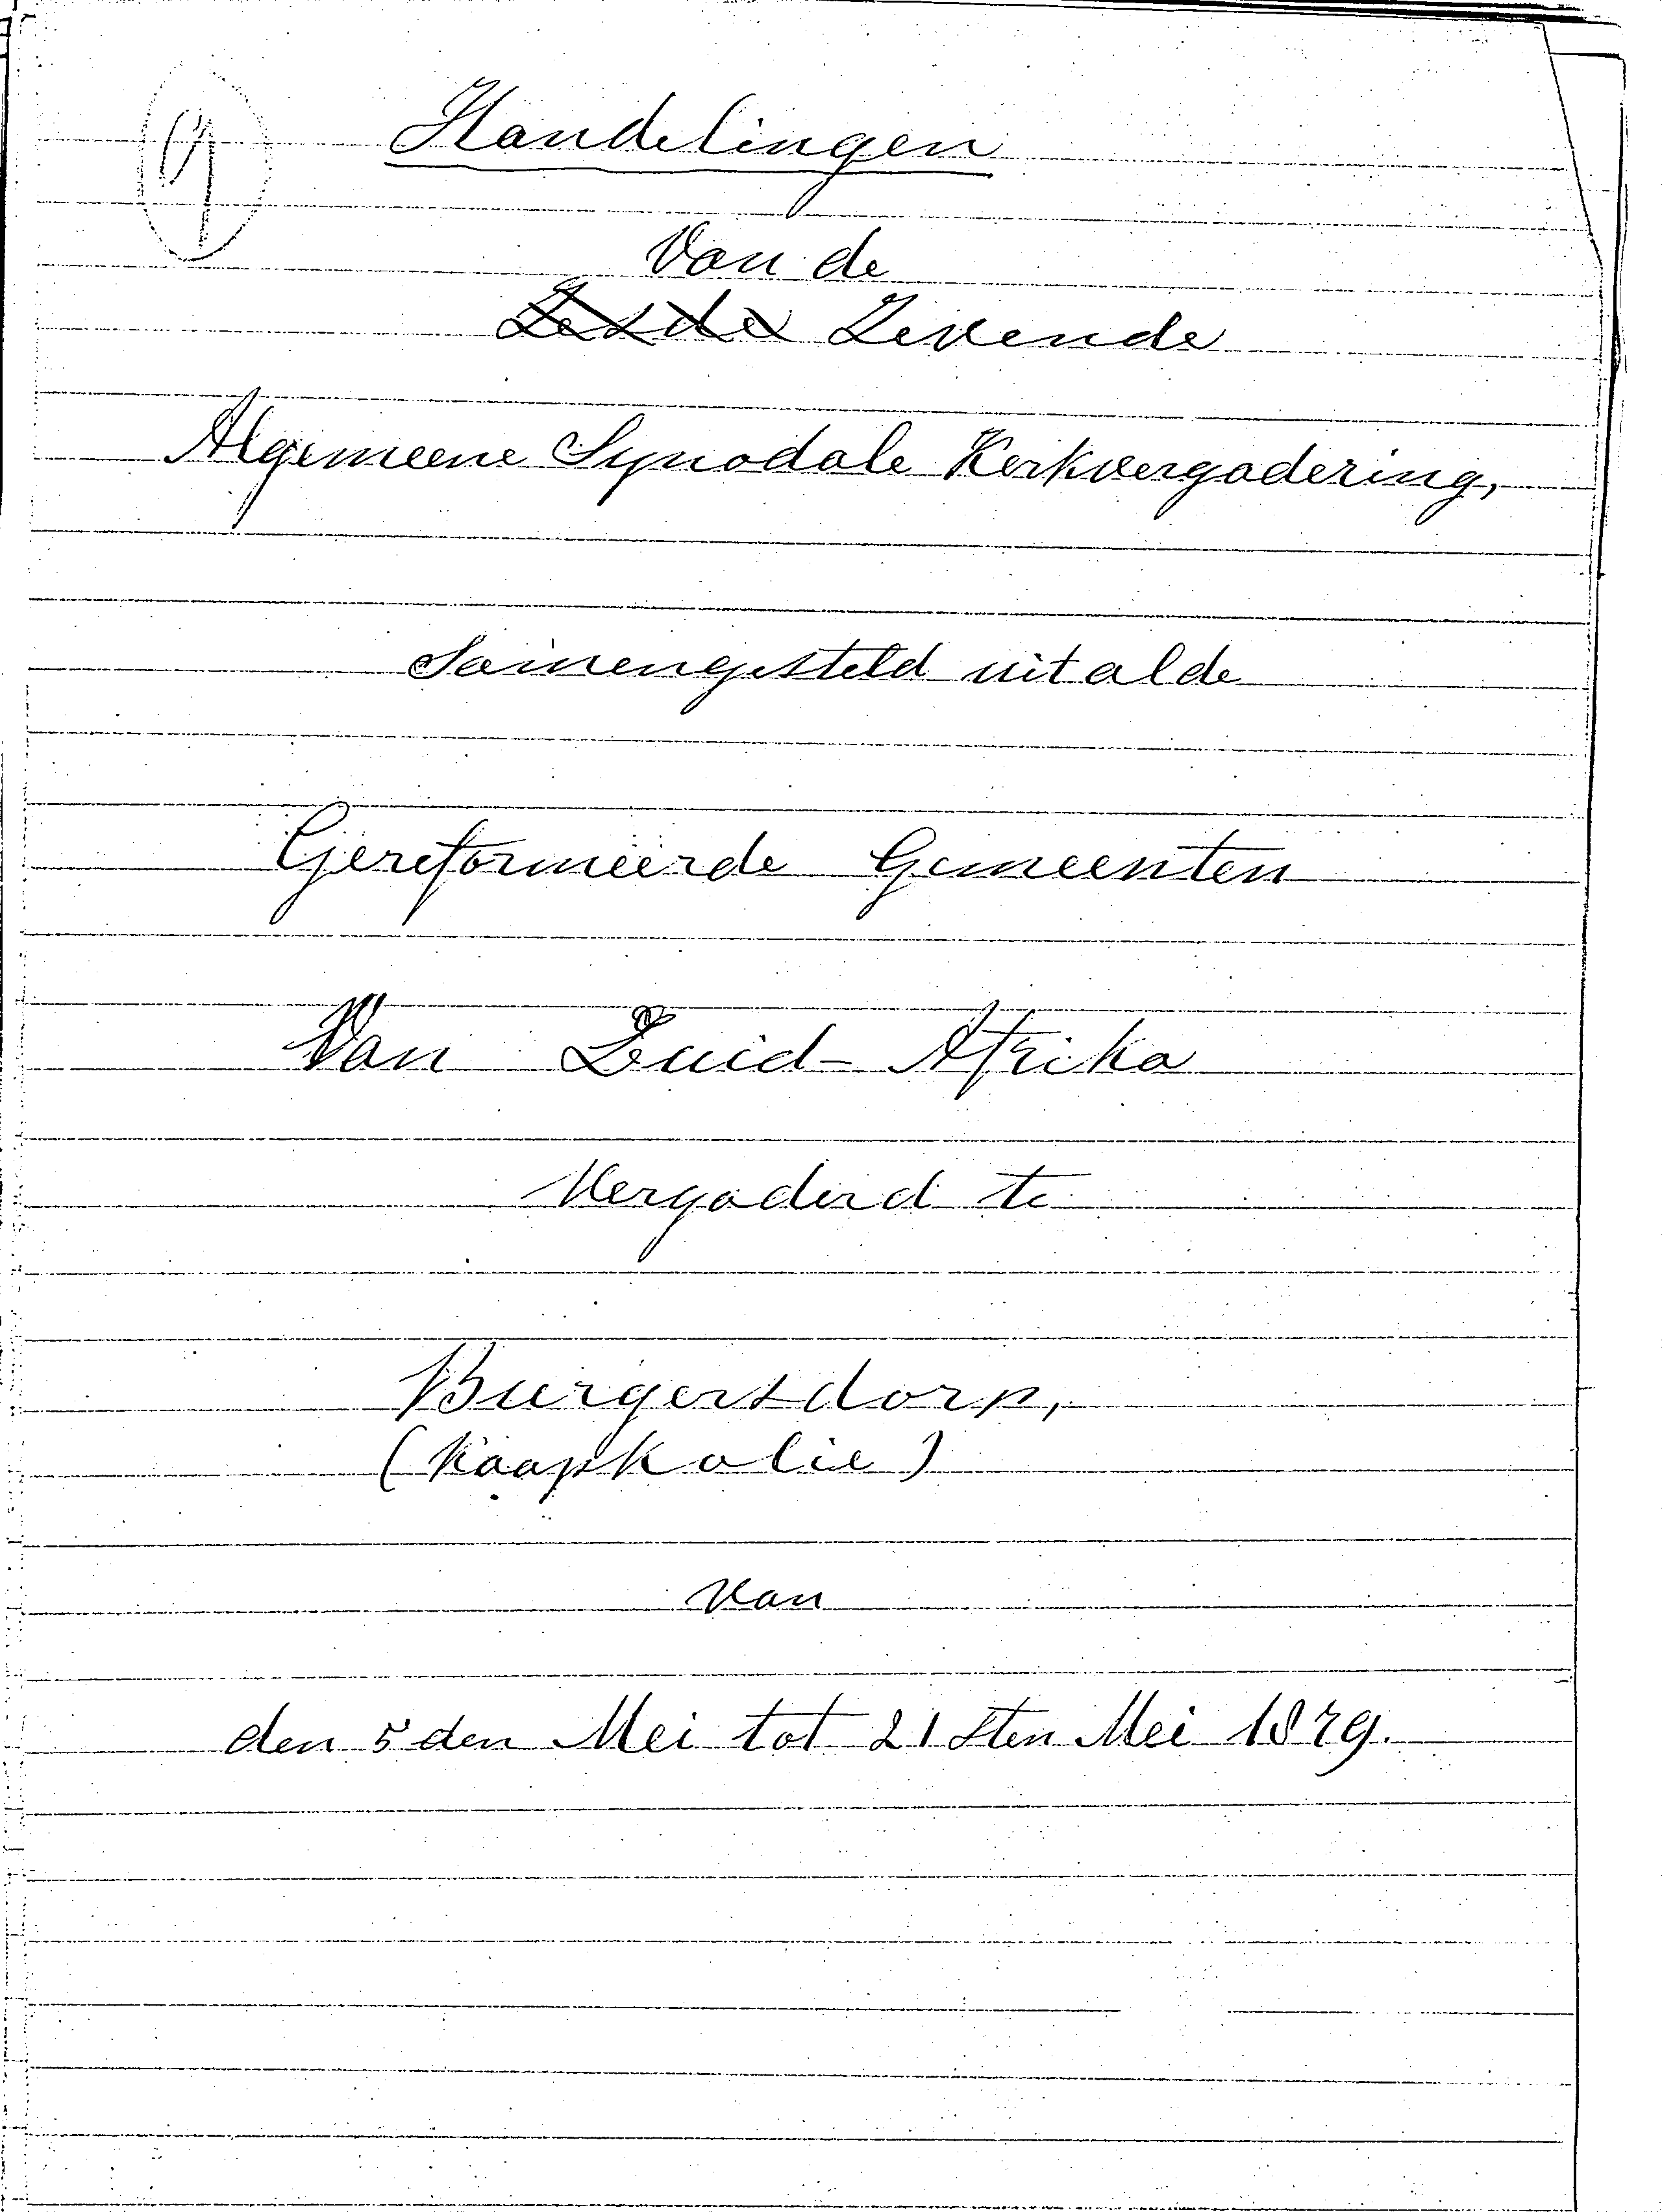 Handelingen
Van de
Zesde Zevende
Algemeene Synodale Kerkvergadering,
Samengesteld uit al de
Gereformeerde Gemeenten
Van Zuid-Afrika
Vergaderd te
Burgersdorp,
(Kaapkolie)
van
den 5 den Mei tot 21sten Mei 1879.